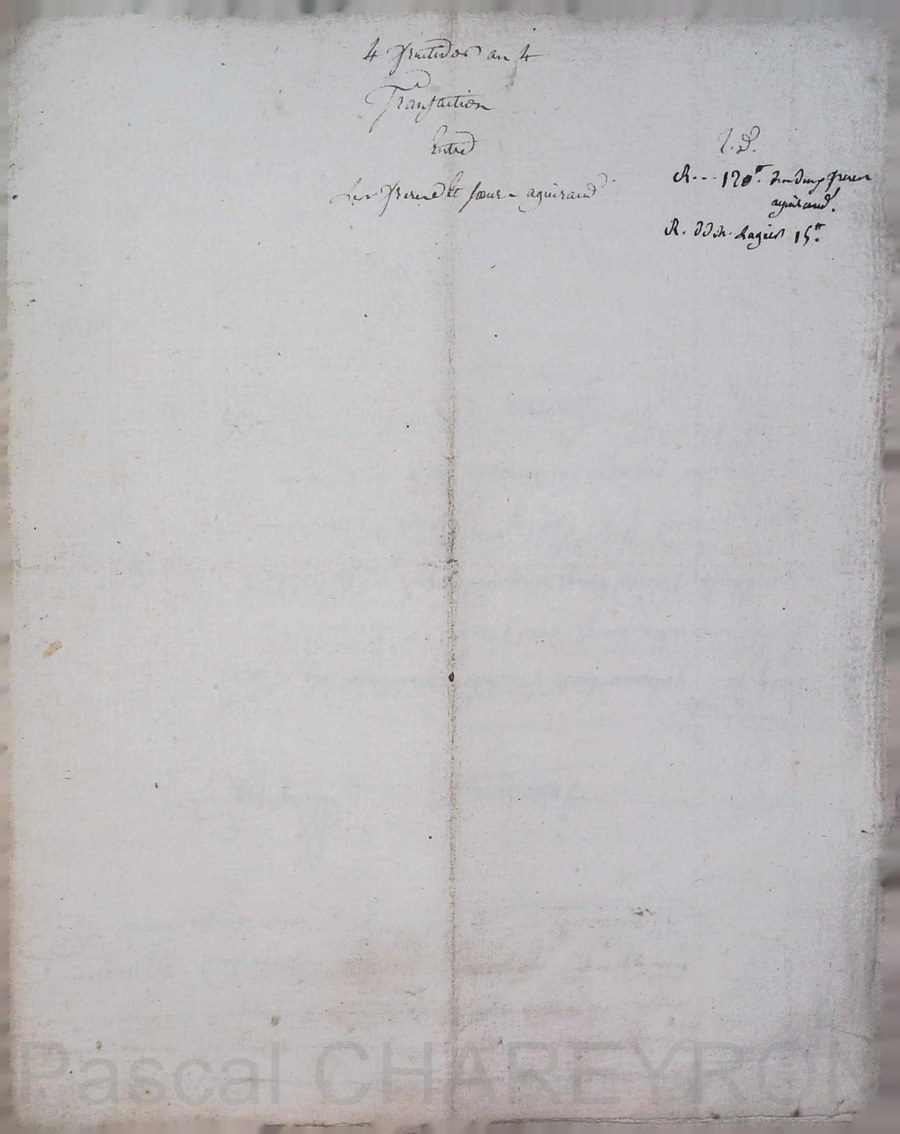 4 fructidor an 4
Transaction
Entre
Les freres Et sœurs aguiraud
R--- 120tt. des deux freres
aguiraud.
R. 15tt.
Pascal CHAREYRON